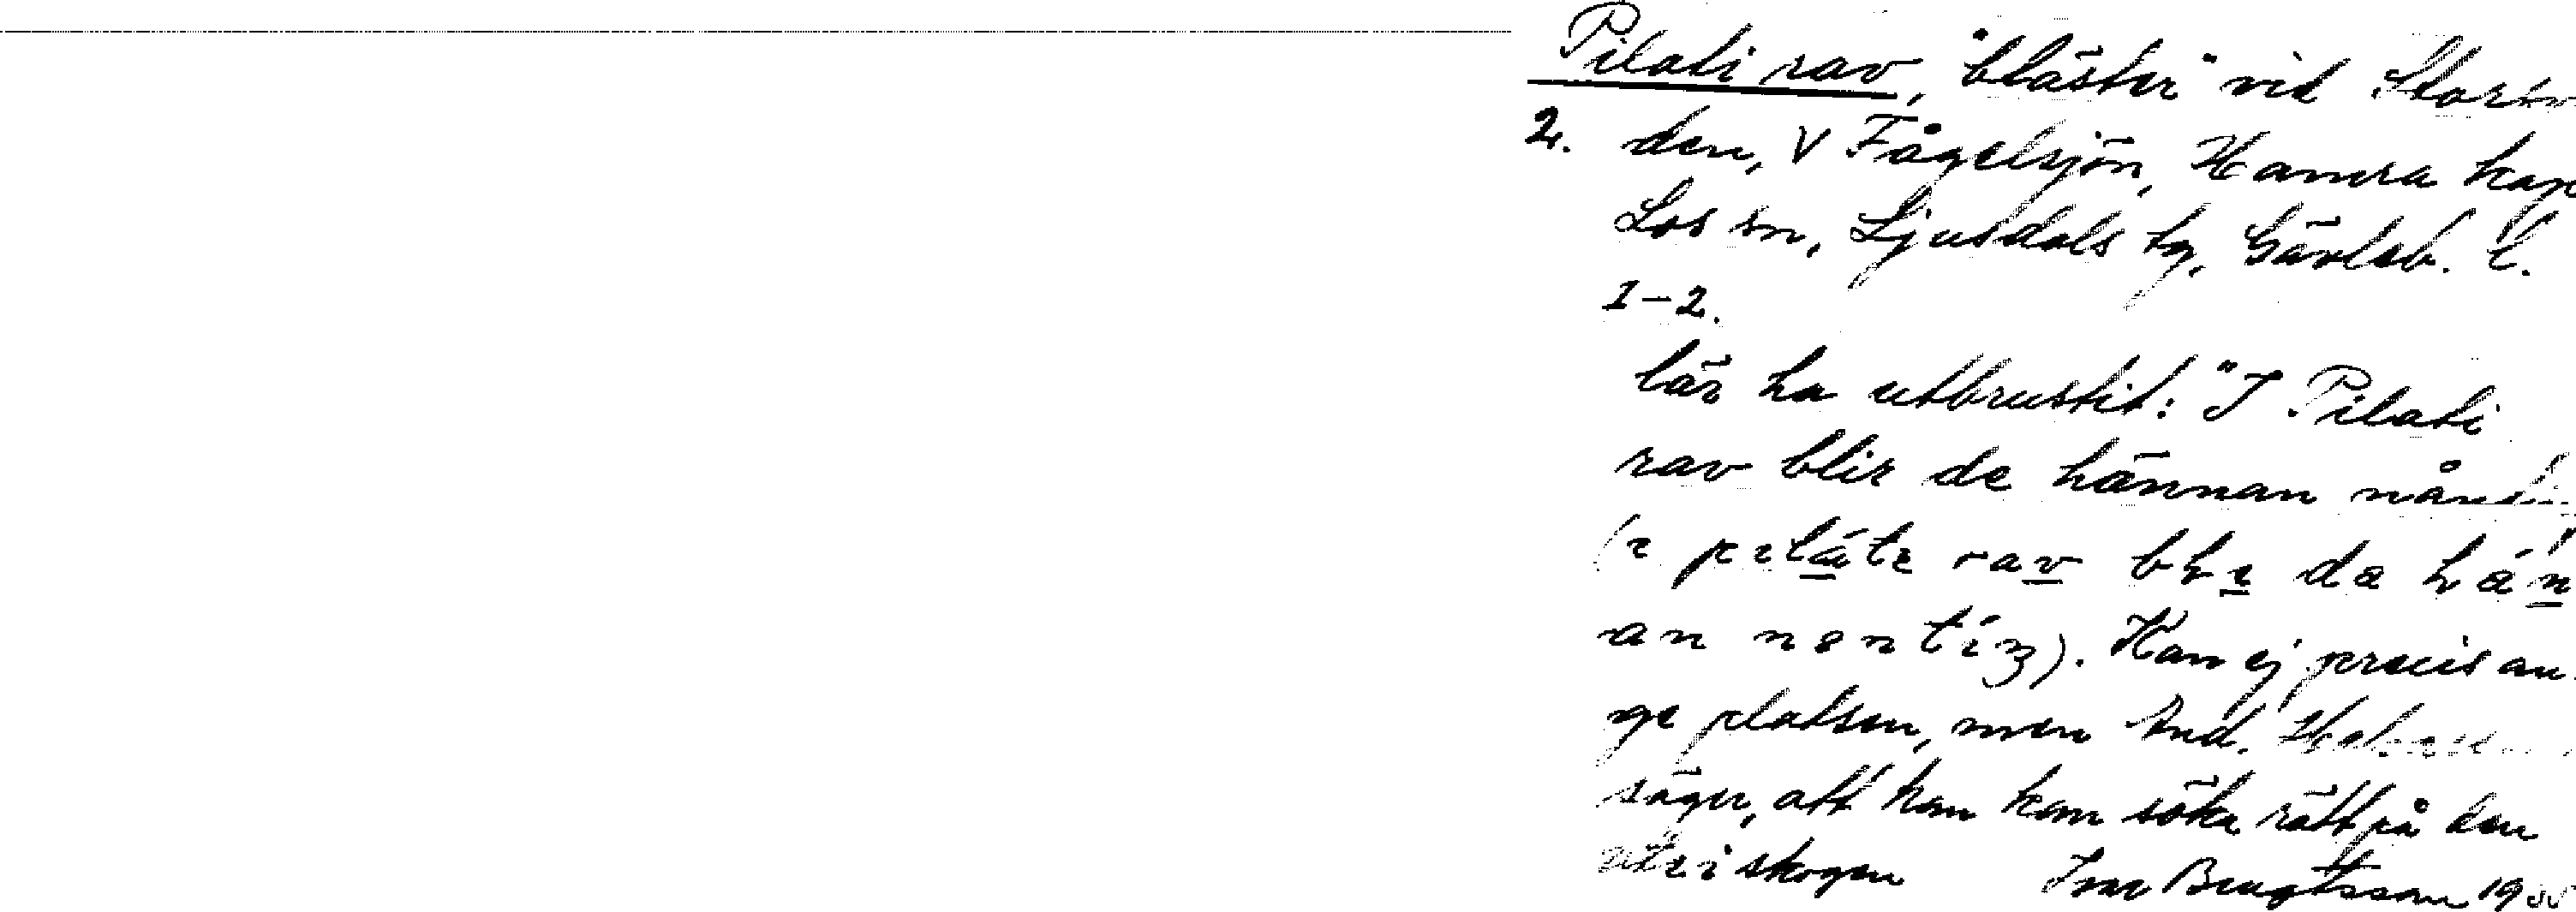 Pilati rav, "bläster" vid Storå
2. den, V Fågelsjön, Hamra kap
Los sn, Ljusdals tg, Gävleb. l.
1-2.
lär ha utbrustit: "I Pilati
rav blir de hännan
(ɪ pɪláte rav da hán
an Kan ej precis an-
ge platsen, men And.
säger, att han kan söka rätt på den
ute i skogen Ivar Bengtsson